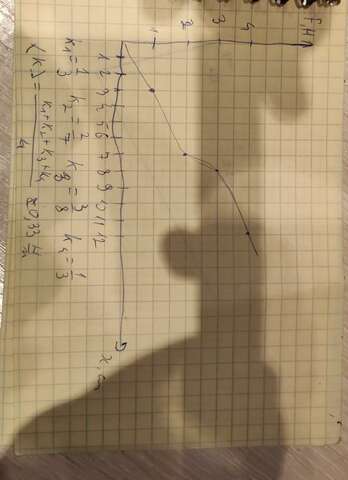 F,H
4
3
2
1
1 2 3 4 5 6 7 8 9 10 11 12
x, cm
k₁ = 1/3 k₂ = 2/7 k₃ = 3/8 k₄ = 1/3
⟨k⟩ = (k₁ + k₂ + k₃ + k₄)/4 ≈ 0,33